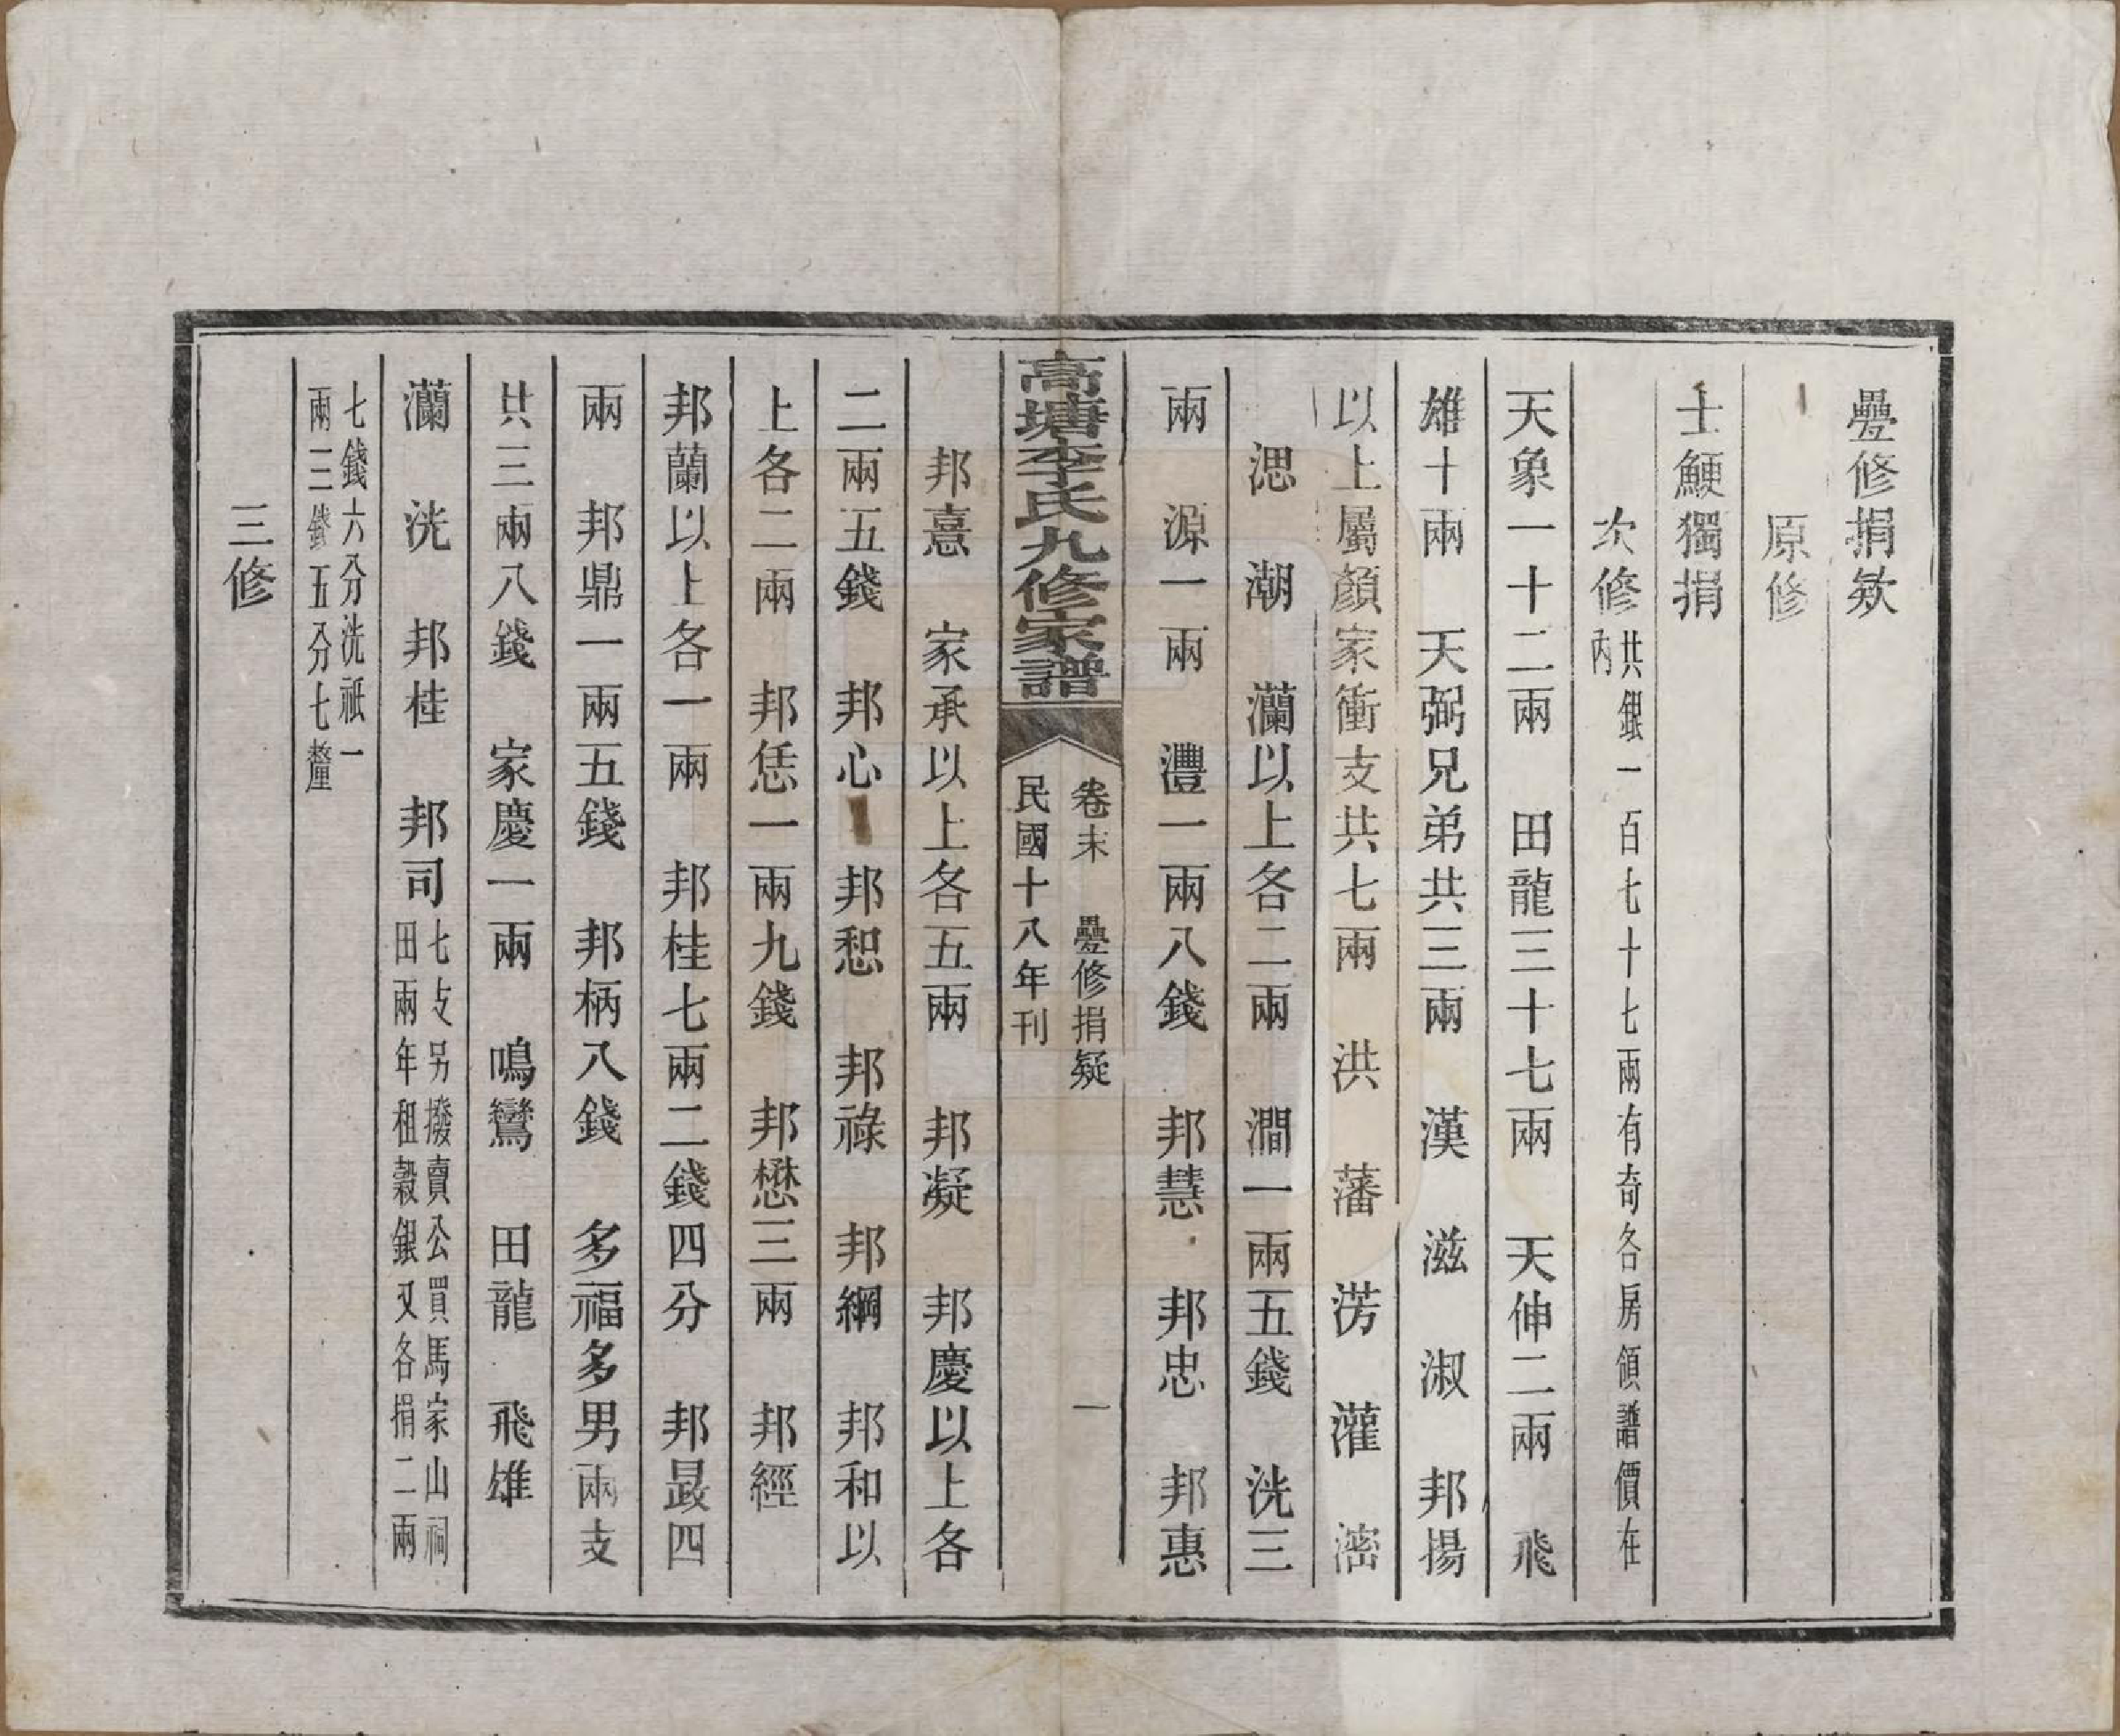 疊修捐欵
原修
士鯁獨捐
次修共銀一百七十七兩有奇各房領譜價在內
天象一十二兩　田龍三十七兩　天伸二兩　飛
雄十兩　天弼兄弟共三兩　漢　滋　淑　邦揚
以上屬顏家衝支共七兩　洪　藩　淓　灌　滵
淣　潮　灡以上各二兩　澗一兩五錢　洸三
兩　源一兩　灃一兩八錢　邦慧　邦忠　邦惠
高塘李氏九修家譜　卷末　疊修捐疑　一　民國十八年刊
邦憙　家承以上各五兩　邦凝　邦慶以上各
二兩五錢　邦心　邦恕　邦祿　邦綱　邦和以
上各二兩　邦恁一兩九錢　邦懋三兩　邦經
邦蘭以上各一兩　邦桂七兩二錢四分　邦晸四
兩　邦鼎一兩五錢　邦柄八錢　多福多男兩支
共三兩八錢　家慶一兩　鳴鸞　田龍　飛雄
灡　洸　邦桂　邦司七支另撥賣公買馬家山祠
田兩年租穀銀又各捐二兩
七錢六分洸祇一
兩三錢五分七釐
三修